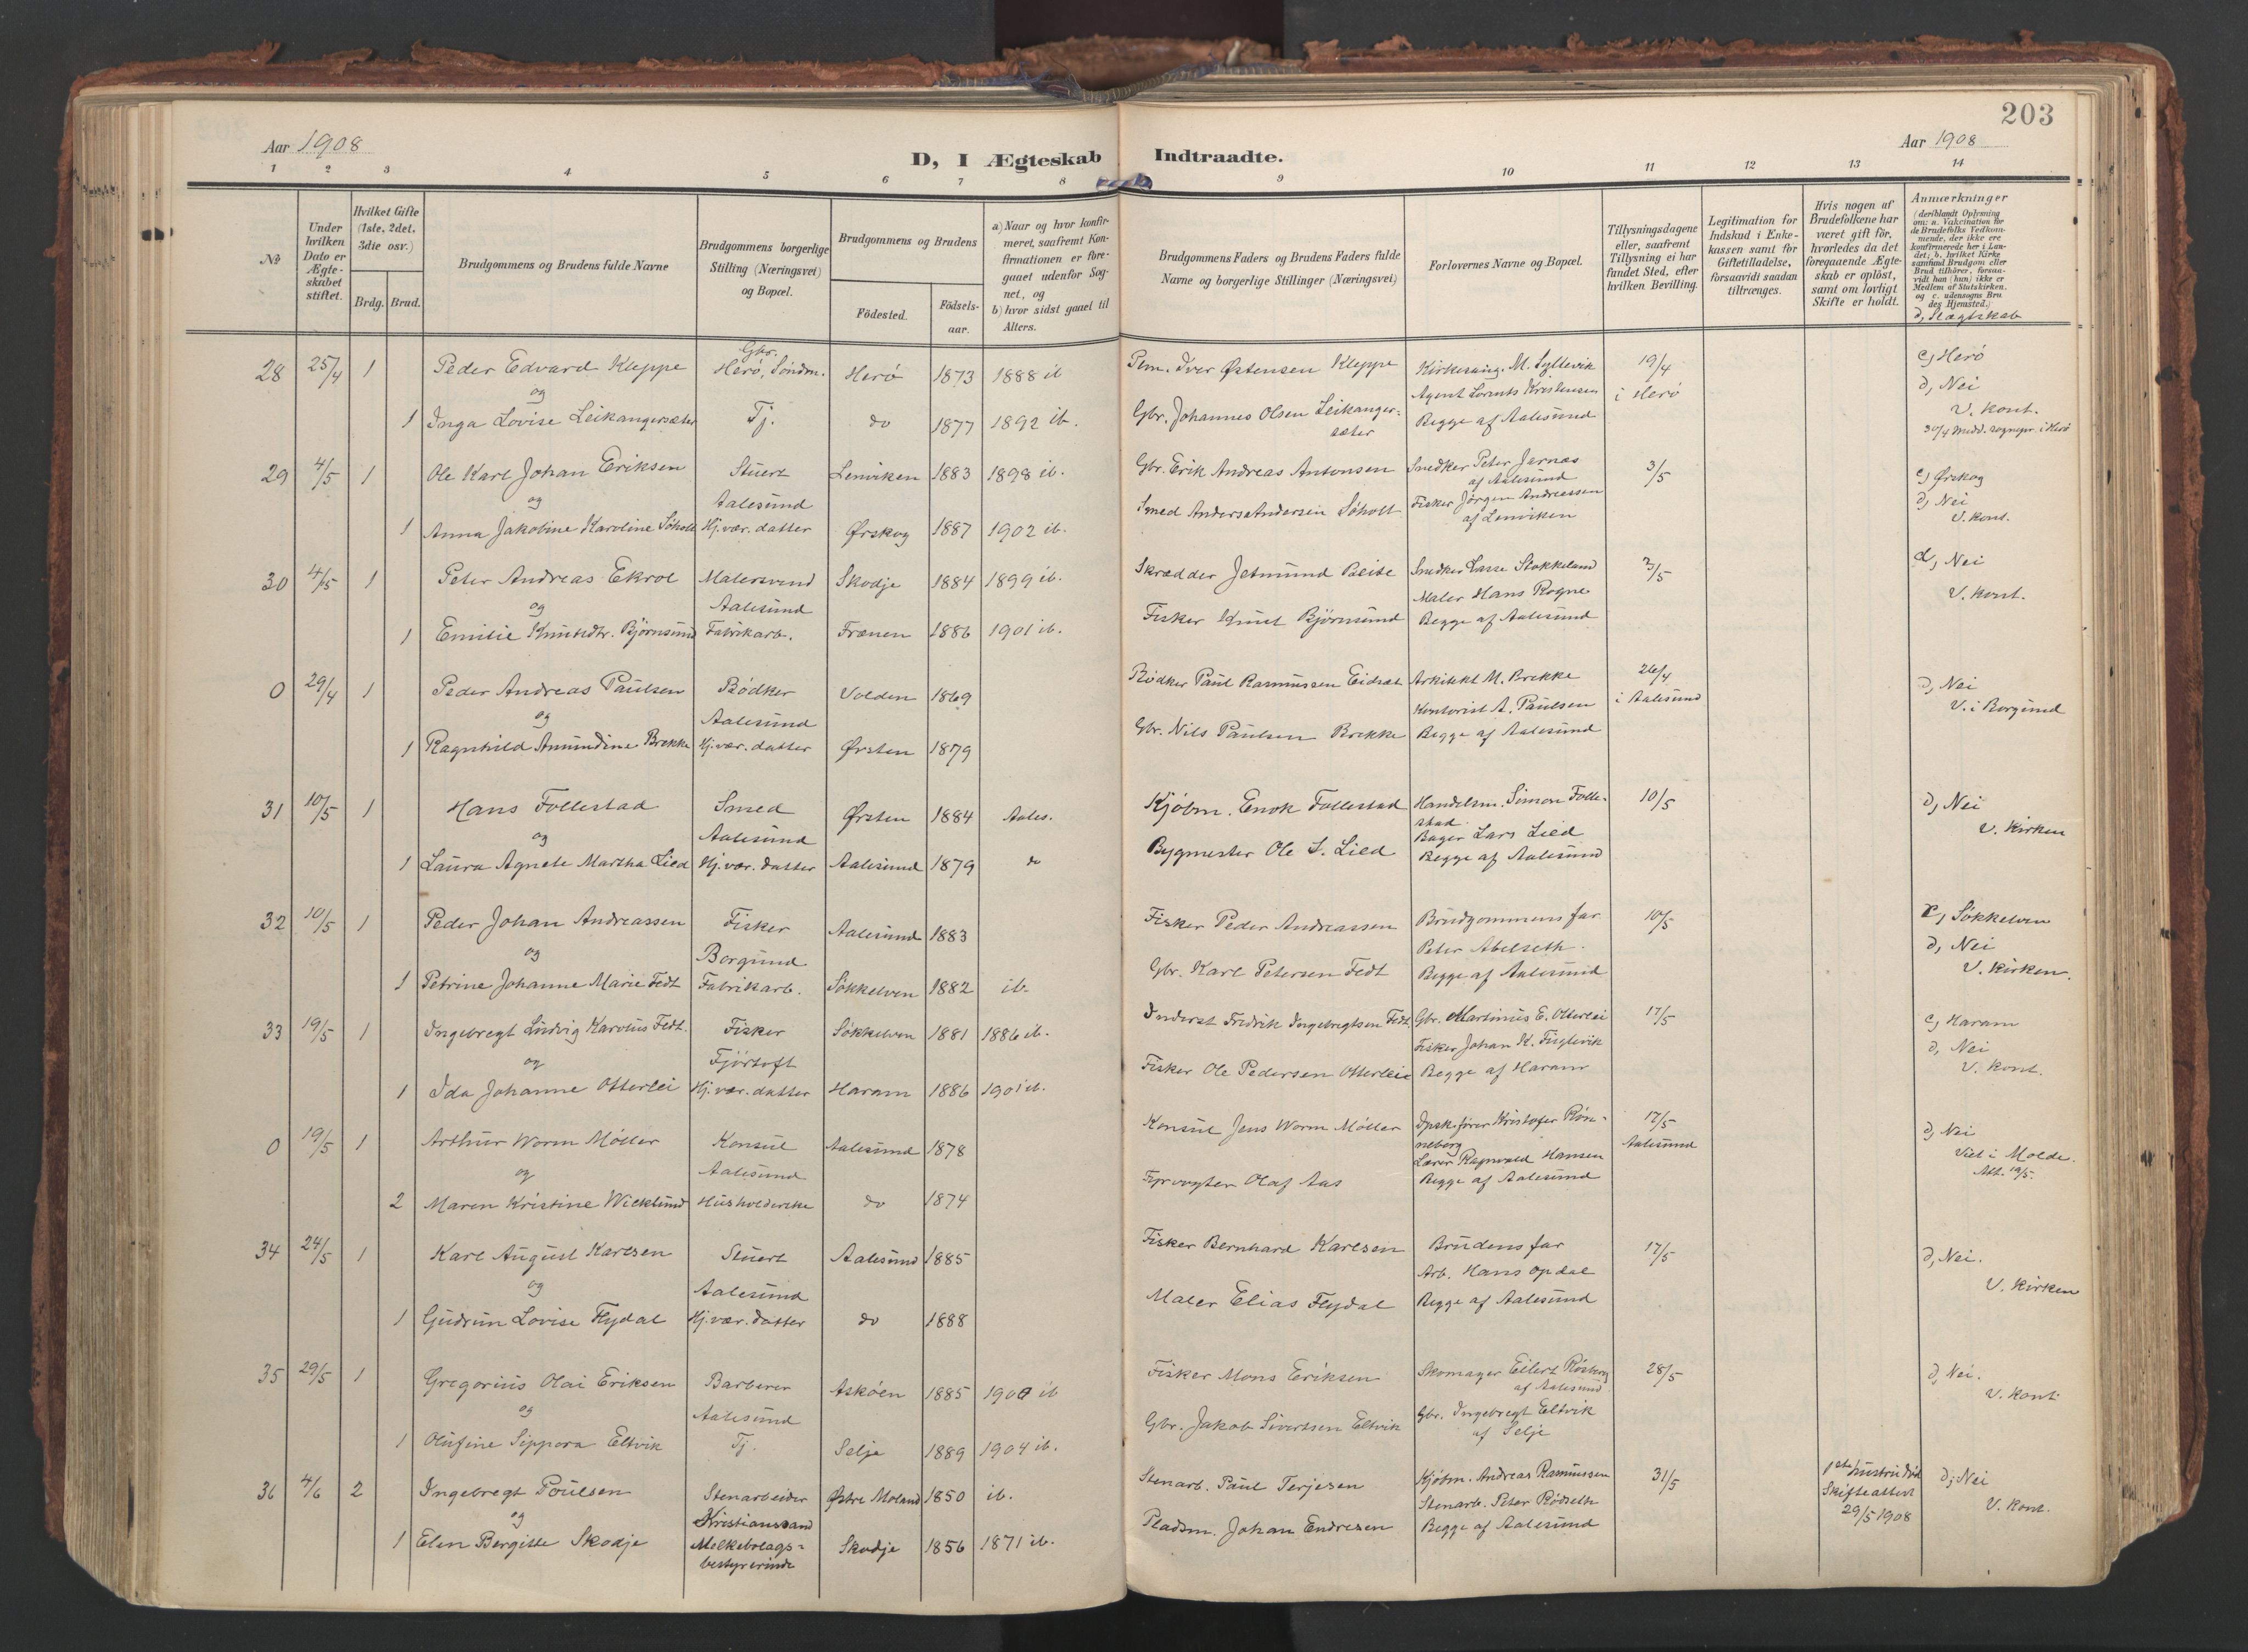 203
Aar 1908
D, I Ægteskab Indtraadte.
Aar 1908
1 2 3 4 5 6 7 8 9 10 11 12 13 14
No
Under hvilken Dato er Ægteskabet stiftet.
Hvilket Gifte (1ste, 2det, 3die osv.)
Brdg. Brud.
Brudgommens og Brudens fulde Navne
Brudgommens borgerlige Stilling (Næringsvei) og Bopæl.
Brudgommens og Brudens
Födested.
Födsels-aar.
a) Naar og hvor konfirmeret, saafremt Konfirmationen er foregaaet udenfor Sognet, og b) hvor sidst gaaet til Alters.
Brudgommens Faders og Brudens Faders fulde Navne og borgerlige Stillinger (Næringsvei)
Forlovernes Navne og Bopæl.
Tillysningsdagene eller, saafremt Tillysning ei har fundet Sted, efter hvilken Bevilling.
Legitimation for Indskud i Enkekassen samt for Giftetilladelse, forsaavidt saadan tiltrænges.
Hvis nogen af Brudefolkene har været gift för, hvorledes da det foregaaende Ægteskab er oplöst, samt om lovligt Skifte er holdt.
Anmærkninger
(deriblandt Oplysning om: a. Vakcination for de Brudefolks Vedkommende, der ikke ere konfirmerede her i Landet; b. hvilket Kirkesamfund Brudgom eller Brud tilhörer, forsaavidt han (hun) ikke er Medlem af Statskirken, og c. udensogns Brudes Hjemsted.)
d, Slægtskab
28 25/4 1 Peder Edvard Kleppe Gbr. Herö, Söndm. Herö 1873 1888 ib Iver Østensen Kleppe Kirkesang. M. Syltevik 19/4 c, Herö
og Agent Lorents Kristensen i Herö d, Nei
1 Inga Lovise Leikangersæter Tj. do 1877 1892 ib. Gbr. Johannes Olsen Leikangersæter Begge af Aalesund V. kont.
30/4 medd. sognepr. i Herö
29 4/5 1 Ole Karl Johan Eriksen Stuert Lenviken 1883 1898 ib. Gbr. Erik Andreas Antonsen Snedker Peter Jarnæs 3/5 c, Ørskog
og Aalesund af Aalesund d, Nei
1 Anna Jakobine Karoline Söholt Hj.vær. datter Ørskog 1887 1902 ib. Smed Anders Andersen Söholt Fisker Jörgen Andreassen af Lenviken V. kont.
30 4/5 1 Peter Andreas Ekrol Malersvend Skodje 1884 1899 ib. Skrædder Jetmund Beite Snedker Lasse Stokkeland 3/5 d, Nei
og Aalesund Maler Hans Rogne V. kont.
1 Emilie Knutsdtr. Björnsund Fabrikarb. Frænen 1886 1901 ib. Fisker Knut Björnsund Begge af Aalesund
0 29/4 1 Peder Andreas Paulsen Bödker Volden 1869 Bödker Paul Rasmussen Eidset Arkitekt M. Brekke 26/4 d, Nei
og Aalesund Kontorist A. Paulsen i Aalesund V. i Borgund
1 Ragnhild Amundine Brekke Hj.vær. datter Ørsten 1879 Gbr. Nils Paulsen Brekke Begge af Aalesund
31 10/5 1 Hans Follestad Smed Ørsten 1884 Aales. Kjöbm. Enok Follestad Handelsm. Simon Follestad 10/5 d, Nei
og Aalesund Bager Lars Lied V. Kirken
1 Laura Agnete Martha Lied Hj.vær. datter Aalesund 1879 do Bygmester Ole S. Lied Begge af Aalesund
32 10/5 1 Peder Johan Andreassen Fisker Aalesund 1883 Fisker Peder Andreassen Brudgommens far 10/5 c, Sökkelven
og Borgund Peter Abelseth. d, Nei
1 Petrine Johanne Marie Fedt Fabrikarb. Sökkelven 1882 ib. Gbr. Karl Petersen Fedt Begge af Aalesund V. Kirken.
33 19/5 1 Ingebregt Ludvig Karolius Fedt. Fisker Sökkelven 1881 1886 ib. Inderst Fredrik Ingebregtsen Fedt. Gbr. Martinus E. Otterlei 17/5 c, Haram
og Fjörtoft Fisker Johan K. Fuglevik d, Nei
1 Ida Johanne Otterlei Hj.vær. datter Haram 1886 1901 ib. Fisker Ole Pedersen Otterlei Begge af Haram V. kont.
0 19/5 1 Arthur Worm Möller Konsul Aalesund 1878 Konsul Jens Worm Möller Dpsk.förer Kristofer Rönneberg 17/5 d, Nei
og Aalesund Lærer Ragnvald Hansen Aalesund Viet i Molde.
Att. 19/5.
2 Maren Kristine Wicklund Husholderske do 1874 Fyrvogter Olaf Aas Begge af Aalesund
34 24/5 1 Karl August Karlsen Stuert Aalesund 1885 Fisker Bernhard Karlsen Brudens far 17/5 d, Nei.
og Aalesund Arb. Hans Opdal V. Kirken
1 Gudrun Lovise Flydal Hj.vær. datter do 1888 Maler Elias Flydal Begge af Aalesund
35 29/5 1 Gregorius Olai Eriksen Barberer Asköen 1885 1900 ib Fisker Mons Eriksen Skomager Eilert Rösberg 28/5 d, Nei.
og Aalesund af Aalesund V. kont
1 Olufine Sippora Eltvik Tj. Selje 1889 1904 ib. Gbr. Jakob Sivertsen Eltvik Gbr. Ingebregt Eltvik af Selje
36 4/6 2 Ingebregt Poulsen Stenarbeider Østre Moland 1850 ib. Stenarb. Paul Terjesen Kjöbm. Andreas Rasmussen 31/5 1ste hustru död d, Nei
og Kristianssand Stenarb. Peter Rödseth Skifteattest V. kont.
1 Elen Bergitte Skodje Melkebolagsbestyrerinde Skodje 1856 1871 ib. Pladsm. Johan Endresen Begge af Aalesund 29/5 1908